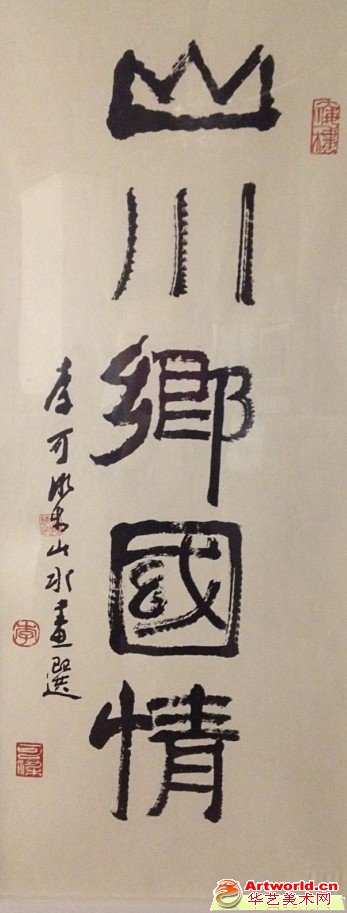 山川鄉國情
李可染山水畫選
Artworld.cn
华艺美术网